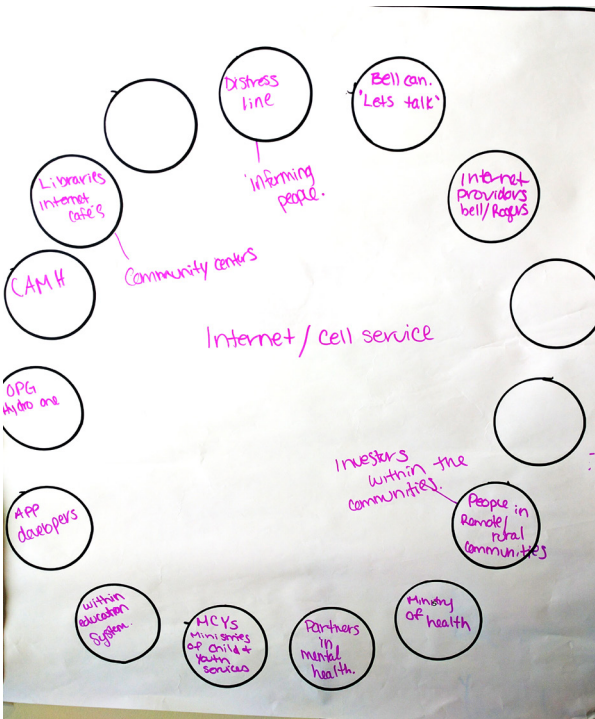 Distress
line
informing
people.
Bell can.
"Lets talk"
Internet
Providors
bell/Rogers
Libraries
internet
café's
Community centers
CAMH
Internet / cell service
OPG
Hydro one
Investors
within the
communities.
People in
Remote/
rural
communities
APP
developers
within
education
System.
MCYs
Ministries
of child +
Youth
services
Partners
in
mental
health.
Ministry
of health